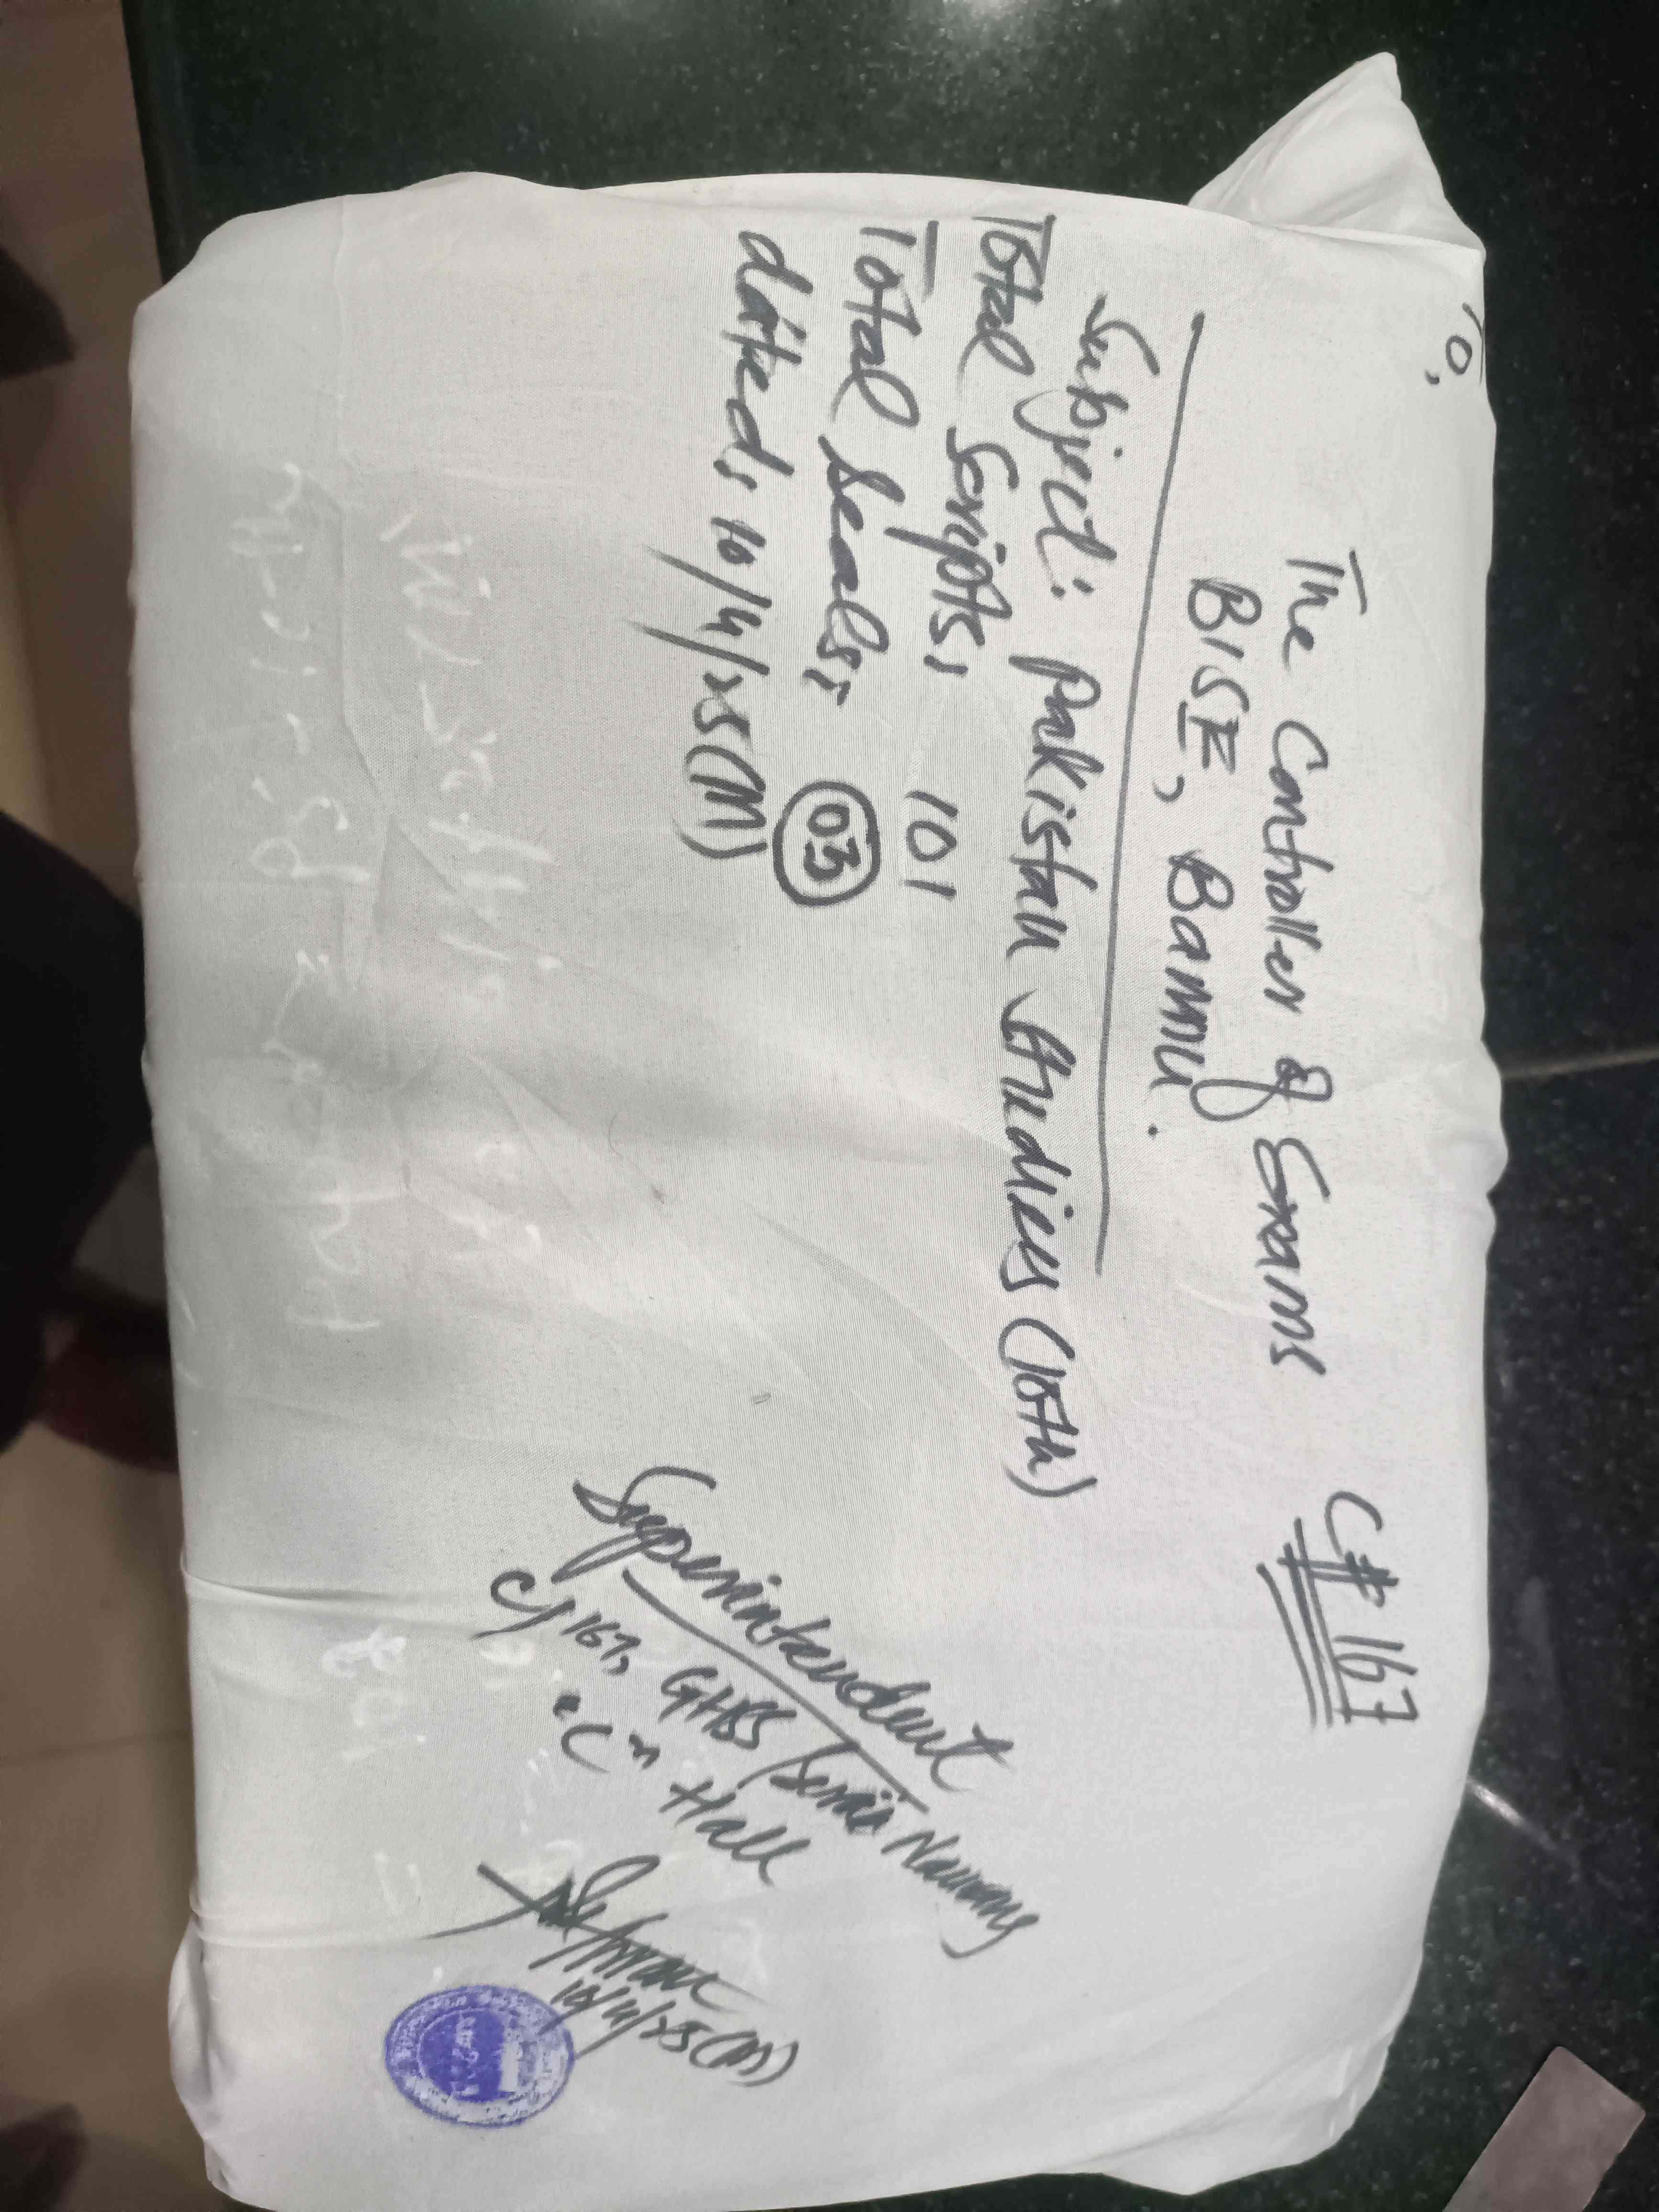 To,
The Controller of Exams
BISE, Bannu.
C# 167
Subject: Pakistan Studies (10th)
Total Scripts: 101
Total Seals: 03
dated: 10/4/25(M)
Superintendent
C/167, GHSS Serai Naurang
"C" Hall
10/4/25(M)